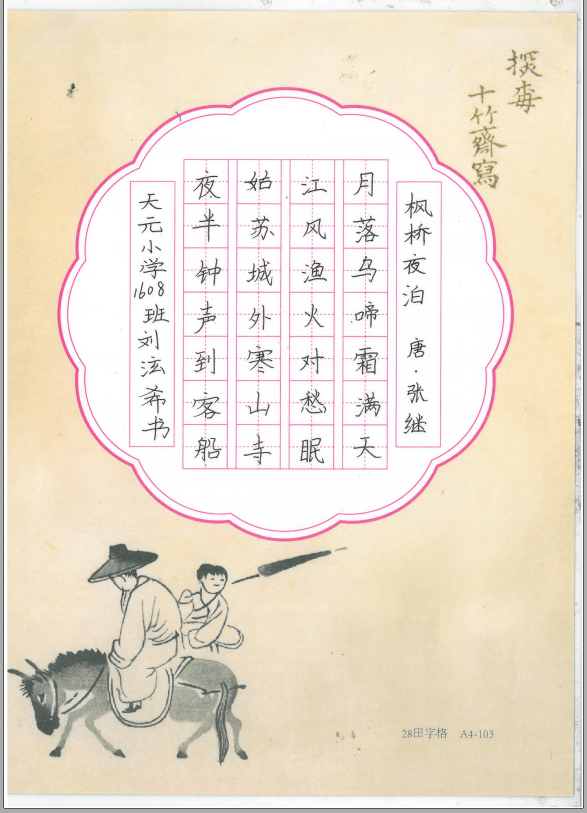 十竹齋寫
枫桥夜泊 唐·张继
月落乌啼霜满天
江风渔火对愁眠
姑苏城外寒山寺
夜半钟声到客船
天元小学1608班刘泫希书
28田字格 A4-103